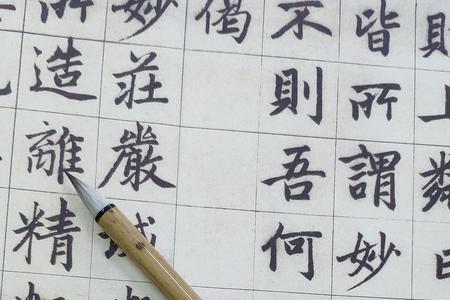 皆所謂妙
不則吾何
偈
妙莊嚴
所造離精